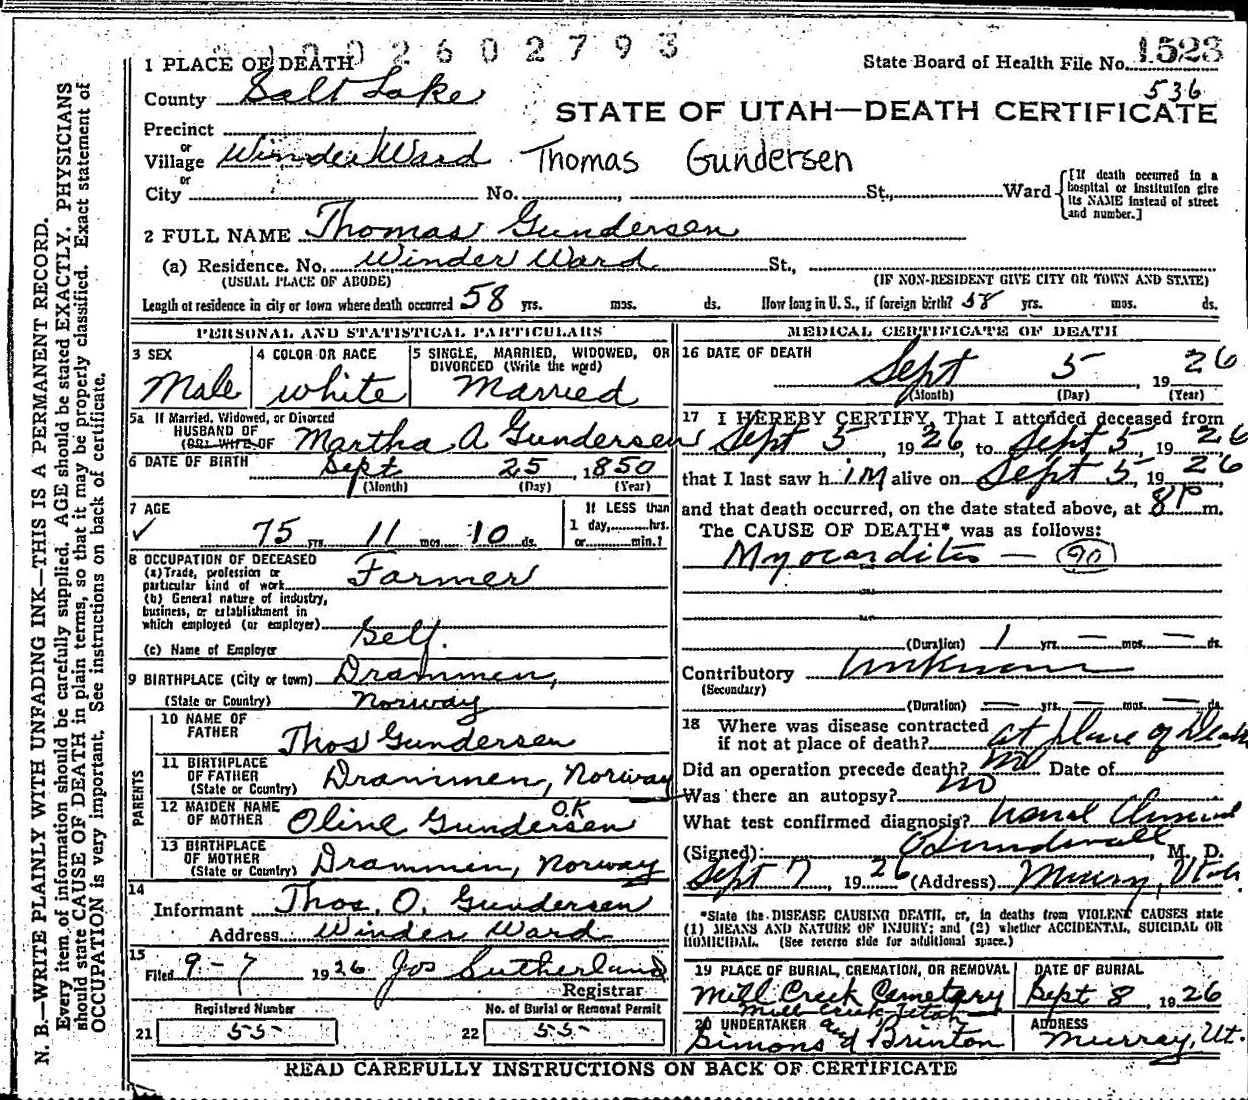 1002602793
1 PLACE OF DEATH
State Board of Health File No. 1523
County Salt Lake
536
STATE OF UTAH—DEATH CERTIFICATE
Precinct
or
Village Winder Ward Thomas Gundersen
or
City No. , St., Ward
[If death occurred in a hospital or institution give its NAME instead of street and number.]
2 FULL NAME Thomas Gundersen
(a) Residence. No. Winder Ward St.,
(USUAL PLACE OF ABODE) (IF NON-RESIDENT GIVE CITY OR TOWN AND STATE)
Length of residence in city or town where death occurred 58 yrs. mos. ds. How long in U. S., if foreign birth? 58 yrs. mos. ds.
PERSONAL AND STATISTICAL PARTICULARS
3 SEX
Male
4 COLOR OR RACE
white
5 SINGLE, MARRIED, WIDOWED, OR
DIVORCED (Write the word)
Married
5a If Married, Widowed, or Divorced
HUSBAND OF
(OR) WIFE OF Martha A Gundersen
6 DATE OF BIRTH Sept 25, 1850
(Month) (Day) (Year)
7 AGE
✓ 75 yrs. 11 mos. 10 ds.
If LESS than
1 day, hrs.
or min.?
8 OCCUPATION OF DECEASED
(a) Trade, profession or
particular kind of work Farmer
(b) General nature of industry,
business, or establishment in
which employed (or employer)
(c) Name of Employer Self.
9 BIRTHPLACE (City or town) Drammen,
(State or Country) Norway
PARENTS
10 NAME OF
FATHER Thos Gundersen
11 BIRTHPLACE
OF FATHER
(State or Country) Drammen, Norway
12 MAIDEN NAME
OF MOTHER Oline Gundersen O.K
13 BIRTHPLACE
OF MOTHER
(State or Country) Drammen, Norway
14
Informant Thos. O. Gundersen
Address Winder Ward
15
Filed 9-7 1926 Jos Sutherland
Registrar
Registered Number No. of Burial or Removal Permit
21 55 22 55
MEDICAL CERTIFICATE OF DEATH
16 DATE OF DEATH
Sept 5, 1926
(Month) (Day) (Year)
17 I HEREBY CERTIFY, That I attended deceased from
Sept 5, 1926, to Sept 5, 1926
that I last saw him alive on Sept 5, 1926,
and that death occurred, on the date stated above, at 8P m.
The CAUSE OF DEATH* was as follows:
Myocarditis — (90)
(Duration) 1 yrs. — mos. — ds.
Contributory Unknown
(Secondary)
(Duration) — yrs. — mos. — ds.
18 Where was disease contracted
if not at place of death? at place of Death
Did an operation precede death? no Date of
Was there an autopsy? no
What test confirmed diagnosis?
(Signed) , M. D.
Sept 7, 1926 (Address) Murray, Utah.
*State the DISEASE CAUSING DEATH, or, in deaths from VIOLENT CAUSES state
(1) MEANS AND NATURE OF INJURY; and (2) whether ACCIDENTAL, SUICIDAL OR
HOMICIDAL. (See reverse side for additional space.)
19 PLACE OF BURIAL, CREMATION, OR REMOVAL
Mill Creek Cemetary
Mill Creek Utah
DATE OF BURIAL
Sept 8, 1926
20 UNDERTAKER
Simons and Brinton
ADDRESS
Murray, Ut.
READ CAREFULLY INSTRUCTIONS ON BACK OF CERTIFICATE
N. B.—WRITE PLAINLY WITH UNFADING INK—THIS IS A PERMANENT RECORD.
Every item of information should be carefully supplied. AGE should be stated EXACTLY. PHYSICIANS
should state CAUSE OF DEATH in plain terms, so that it may be properly classified. Exact statement of
OCCUPATION is very important. See instructions on back of certificate.